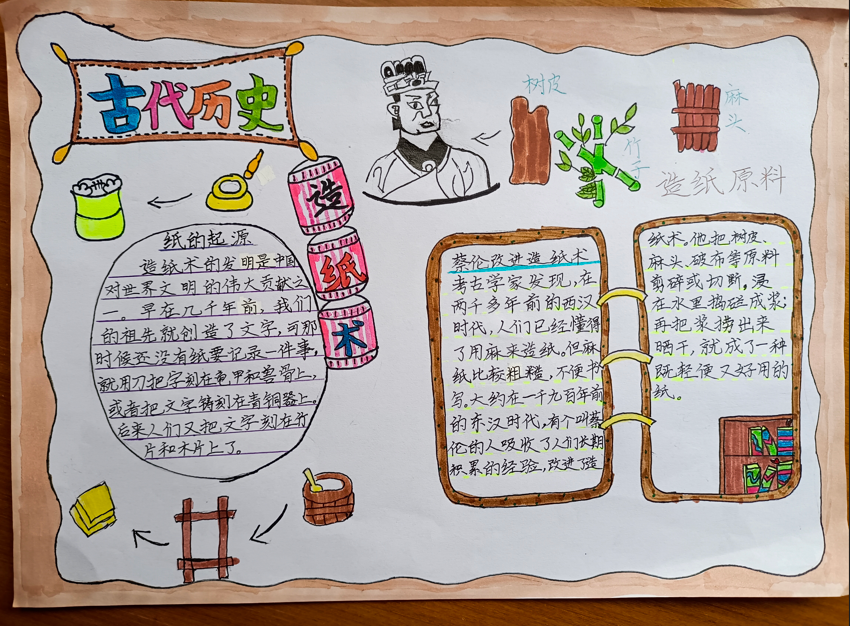 古代历史
造
纸
术
树皮
竹子
麻
头
造纸原料
纸的起源
造纸术的发明是中国
对世界文明的伟大贡献之
一。早在几千年前,我们
的祖先就创造了文字,可那
时候还没有纸要记录一件事,
就用刀把字刻在龟甲和兽骨上,
或者把文字铸刻在青铜器上。
后来人们又把文字刻在竹
片和木片上了。
蔡伦改进造纸术
考古学家发现,在
两千多年前的西汉
时代,人们已经懂得
了用麻来造纸。但麻
纸比较粗糙,不便书
写。大约在一千九百年前
的东汉时代,有个叫蔡
伦的人吸收了人们长期
积累的经验,改进了造
纸术。他把树皮、
麻头、破布等原料
剪碎或切断,浸
在水里捣碰成浆;
再把浆捞出来
晒干,就成了一种
既轻便又好用的
纸。